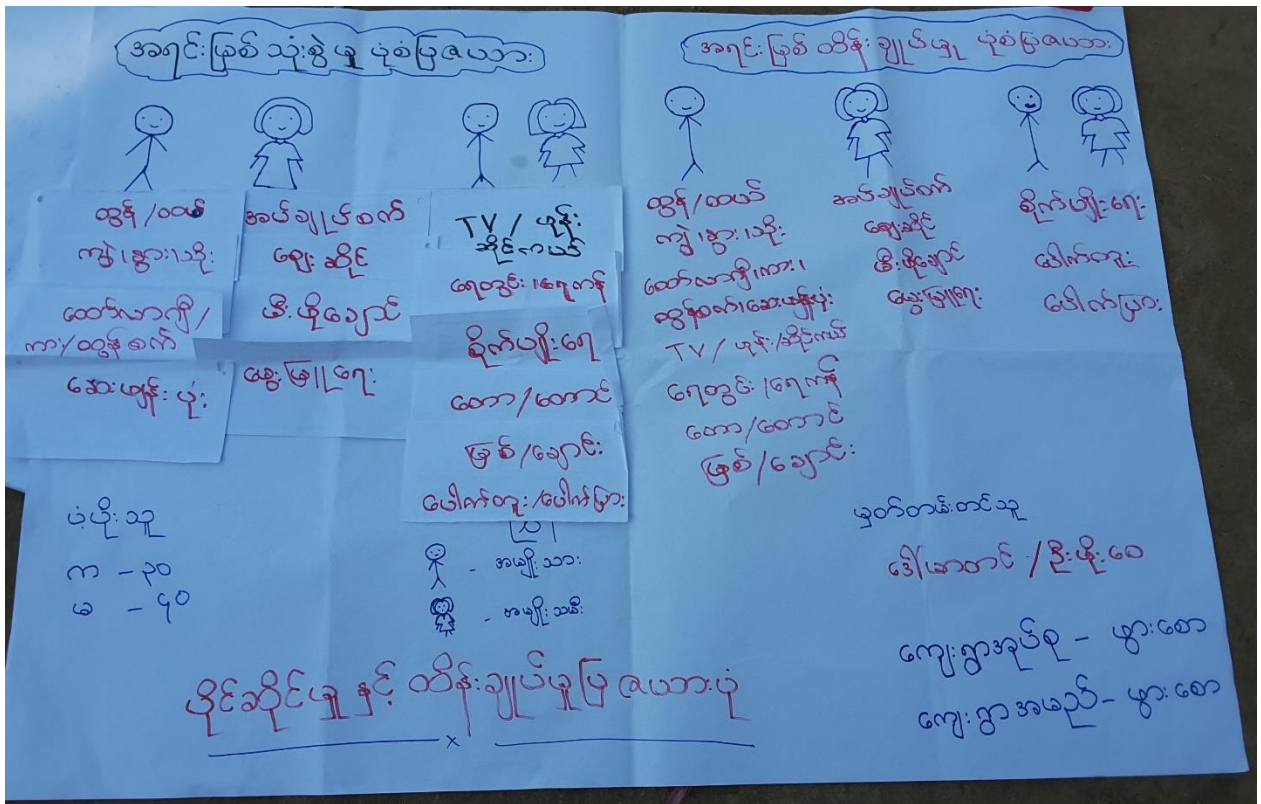 အရင်းမြစ် သုံးစွဲမှု ပုံစံပြဇယား
ထွန် / ထယ်
ကျွဲ၊ နွား၊ သိုး
ထော်လာဂျီ /
ကား/ထွန်စက်
ဆေးဖျန်းပုံး
အပ်ချုပ်စက်
ဈေးဆိုင်
မီးဖိုချောင်
မွေးမြူရေး
TV / ဖုန်း
ဆိုင်ကယ်
ရေတွင်း ၊ရေကန်
စိုက်ပျိုးရေး
တော / တောင်
မြစ် / ချောင်း
ပေါက်တူး /ပေါက်ပြား
အရင်းမြစ် ထိန်းချုပ်မှု ပုံစံပြဇယား
ထွန် / ထယ်
ကျွဲ ၊ နွား ၊ သိုး
ထော်လာဂျီ ၊ကား ၊
ထွန်စက်၊ ဆေးဖျန်းပုံး
TV / ဖုန်း /ဆိုင်ကယ်
ရေတွင်း ၊ရေကန်
တော / တောင်
မြစ် / ချောင်း
အပ်ချုပ်စက်
ဈေးဆိုင်
မီးဖိုချောင်
မွေးမြူရေး
စိုက်ပျိုးရေး
ပေါက်တူး
ပေါက်ပြား
ပံ့ပိုးသူ
က – ၃၀
မ – ၄၀
- အမျိုးသား
- အမျိုးသမီး
မှတ်တမ်းတင်သူ
ကျေးရွာအုပ်စု – ဖွားစော
ကျေးရွာအမည် – ဖွားစော
ပိုင်ဆိုင်မှု နှင့် ထိန်းချုပ်မှုပြ ဇယားပုံ